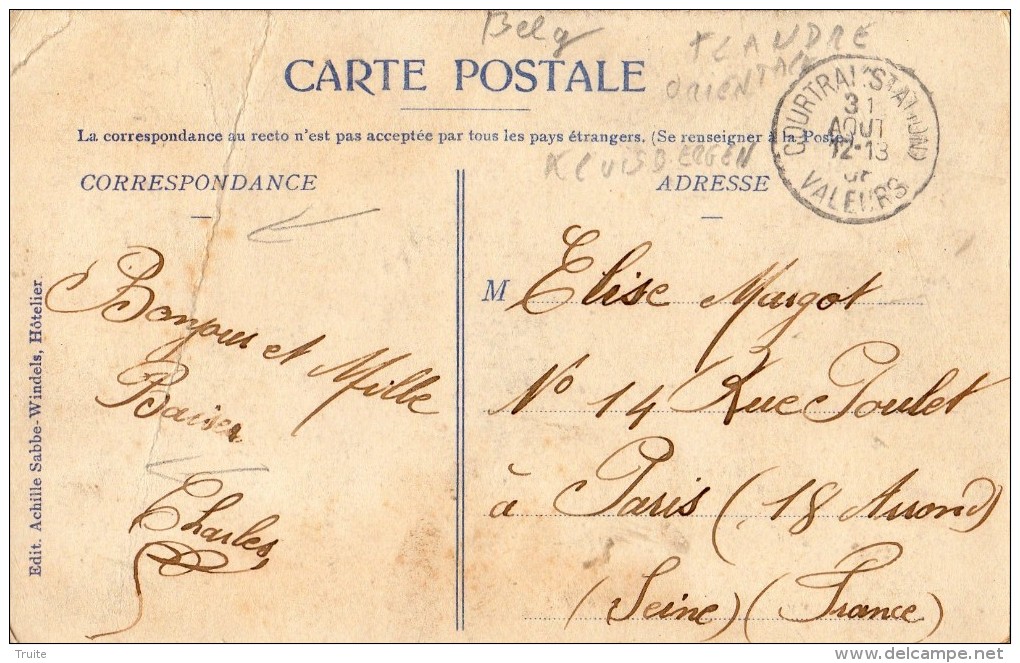 Belg
FLANDRE
ORIENTALE
CARTE POSTALE
COURTRAI STATION
31
AOUT
12-13
VALEURS
La correspondance au recto n'est pas acceptée par tous les pays étrangers. (Se renseigner à la Poste.)
KLUISBERGEN
CORRESPONDANCE
ADRESSE
Bonjour et Mille
Baiser
Charles
M Elise Margot
No 14 Rue Poulet
à Paris (18 Arrond)
(Seine) (France)
Edit. Achille Sabbe-Windels, Hôtelier
Truite
www.delcampe.net